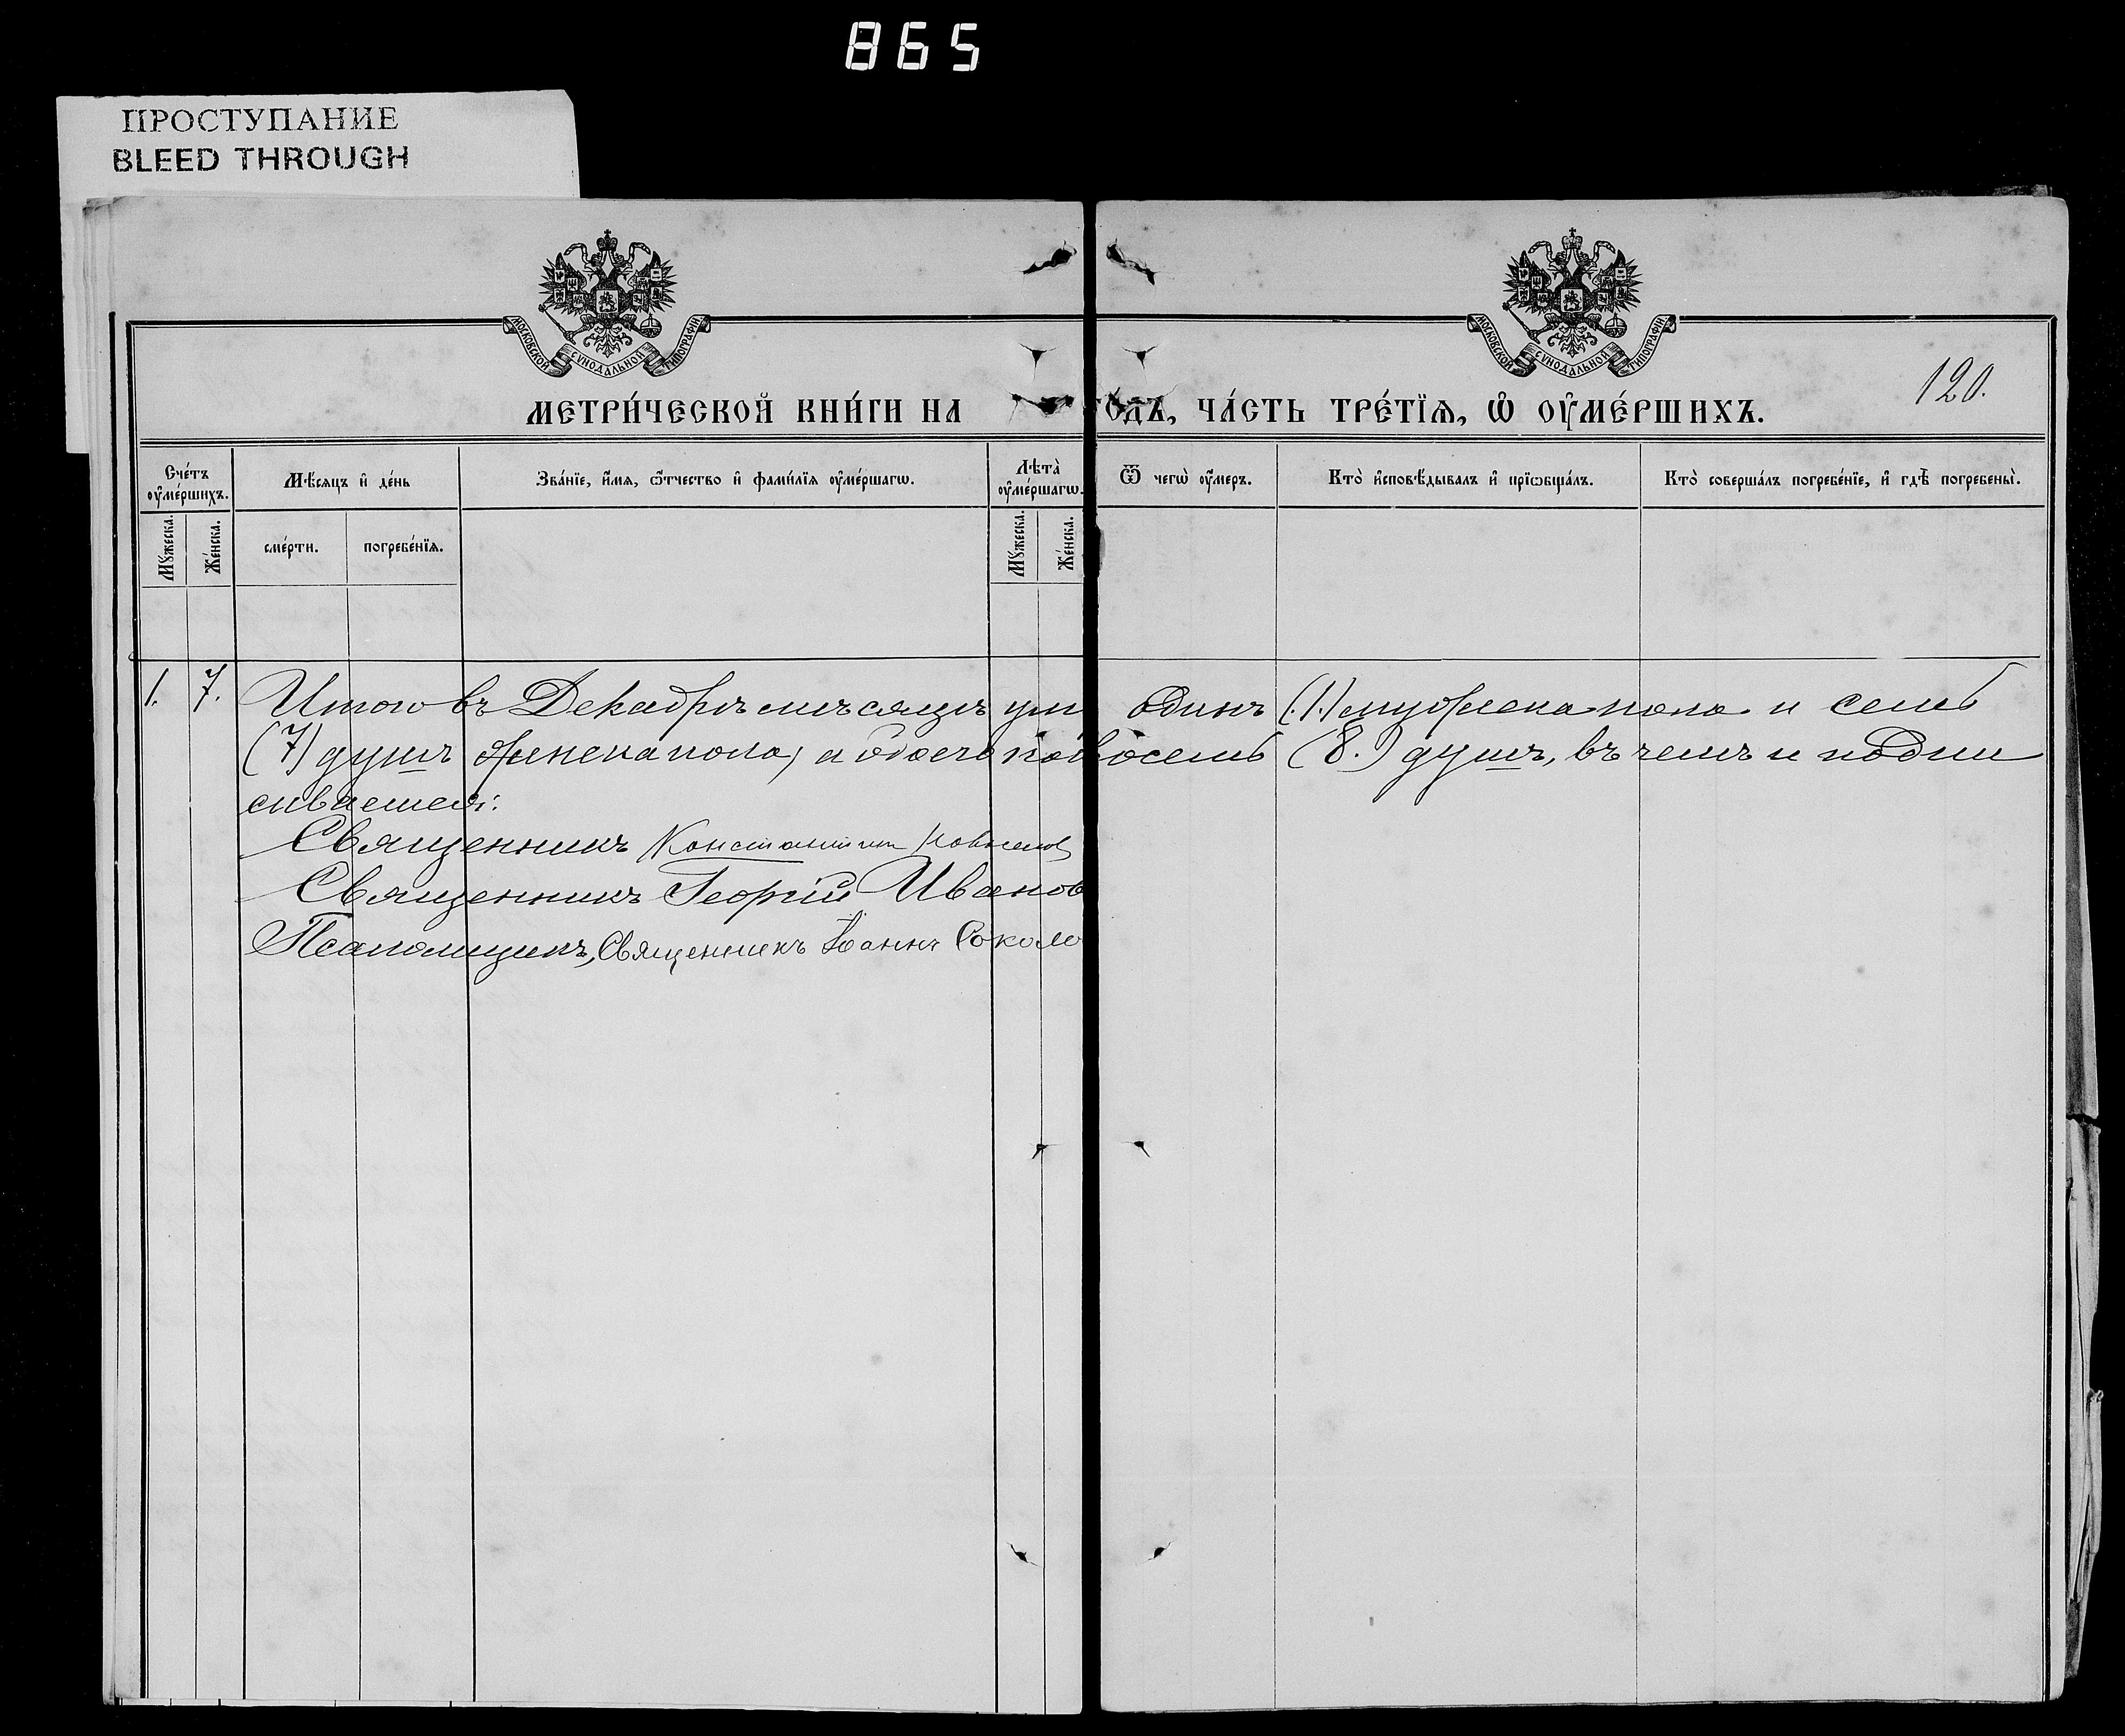 865
ПРОСТУПАНИЕ
BLEED THROUGH
МОСКОВСКОЙ СУНОДАЛЬНОЙ ТИПОГРАФІИ
МОСКОВСКОЙ СУНОДАЛЬНОЙ ТИПОГРАФІИ
120.
МЕТРИ́ЧЕСКОЙ КНИ́ГИ НА ГО́ДЪ, ЧА́СТЬ ТРЕ́ТЇѦ, Ѡ҆ ОУ҆МЕ́РШИХЪ.
Сче́тъ оу҆ме́ршихъ.
Мꙋ́жеска.
Же́нска.
Мѣ́сяцъ и҆ де́нь
сме́рти.
погребе́нїя.
Зва́нїе, и҆́мя, ѻ҆́тчество и҆ фами́лїя оу҆ме́ршагѡ.
Лѣ́та оу҆ме́ршагѡ.
Мꙋ́жеска.
Же́нска.
Ѿ чегѡ̀ оу҆́меръ.
Кто̀ и҆сповѣ́дывалъ и҆ прїѡбща́лъ.
Кто̀ соверша́лъ погребе́нїе, и҆ гдѣ̀ погребены̀.
1. 7. Итого въ Декабрѣ мѣсяцѣ ум одинъ (1.) мужеска пола и семь
(7) душъ женска пола, а обоего пол восемь (8.) душъ, въ чемъ и подпи
сываемся:
Священникъ Константин
Священникъ Георгій Иванов
Псаломщикъ, Священникъ Іоаннъ Соколо